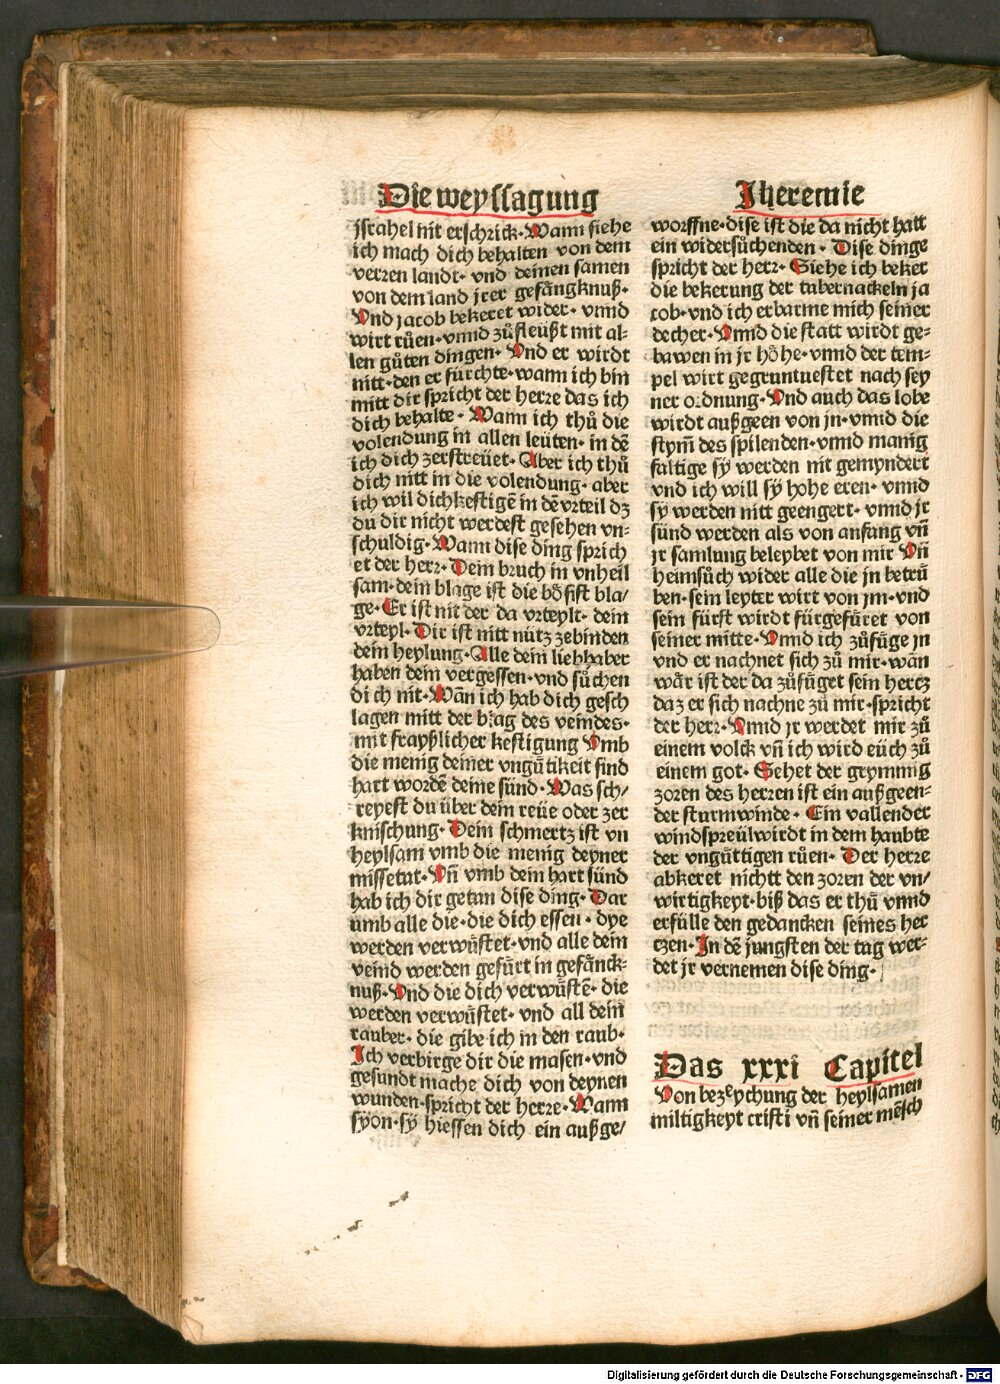 Die weyssagung
jsrahel nit erschrick· Wann siehe
ich mach dich behalten von dem
verren landt· vnd deinen samen
von dem land jrer gefängknuß·
Vnd jacob bekeret wider· vnnd
wirt růen· vnnd zůfleüßt mit al-
len gůten dingen· Vnd er wirdt
nitt· den er fürchte· wann ich bin
mitt dir spricht der herre das ich
dich behalte· Wann ich thů die
volendung in allen leüten· in dē
ich dich zerstreüet· Aber ich thů
dich nitt in die volendung· aber
ich wil dich kestigē in dē vrteil dz
du dir nicht werdest gesehen vn-
schuldig· Wann dise ding sprich
et der herr· Dein bruch in vnheil
sam· dein blage ist die bößist bla-
ge· Er ist nit der da vrteylt· dein
vrteyl· Dir ist nitt nutz zebinden
dein heylung· Alle dein liebhaber
haben dein vergessen· vnd sůchen
dich nit· Wān ich hab dich gesch
lagen mitt der blag des veindes·
mit frayßlicher kestigung Vmb
die menig deiner vngütikeit sind
hart wordē deine sünd· Was sch/
reyest du über dein reüe oder zer
knischung· Dein schmertz ist vn
heylsam vmb die menig deyner
missetat· Vn̄ vmb dein hart sünd
hab ich dir getan dise ding· Dar
umb alle die· die dich essen· dye
werden verwüstet· vnd alle dein
veind werden gefürt in gefänck-
nuß· Vnd die dich verwüstē· die
werden verwüstet· vnd all dein
rauber· die gibe ich in den raub·
Ich verbirge dir die masen· vnd
gesundt mache dich von deynen
wunden· spricht der herre· Wann
syon· sÿ hiessen dich ein außge/
Iheremie
worffne· dise ist die da nicht hatt
ein widersůchenden· Dise dinge
spricht der herr· Siehe ich beker
die bekerung der tabernackeln ja
cob· vnd ich erbarme mich seiner
decher· Vnnd die statt wirdt ge-
bawen in jr höhe· vnnd der tem-
pel wirt gegruntuestet nach sey
ner ordnung· Vnd auch das lobe
wirdt außgeen von jn· vnnd die
stym̄ des spilenden· vnnd manig
faltige sÿ werden nit gemyndert
vnd ich will sÿ hohe eren· vnnd
sy werden nitt geengert· vnnd jr
sünd werden als von anfang vn̄
jr samlung beleybet von mir Vn̄
heimsůch wider alle die jn betrü
ben· sein leyter wirt von jm· vnd
sein fürst wirdt fürgefüret von
seiner mitte· Vnnd ich zůfüge jn
vnd er nachnet sich zů mir· wān
wär ist der da zůfüget sein hertz
daz er sich nachne zů mir· spricht
der herr· Vnnd jr werdet mir zů
einem volck vn̄ ich wird eüch zů
einem got· Sehet der grymmig
zoren des herren ist ein außgeen-
der sturmwinde· Ein vallender
windspreül wirdt in dem haubte
der vngüttigen růen· Der herre
abkeret nichtt den zoren der vn/
wirtigkeyt· biß das er thů vnnd
erfülle den gedancken seines her
tzen· In dē jungsten der tag wer-
det jr vernemen dise ding·
Das xxxi Capitel
Von bezeychung der heylsamen
miltigkeyt cristi vn̄ seiner mēsch
Digitalisierung gefördert durch die Deutsche Forschungsgemeinschaft - DFG